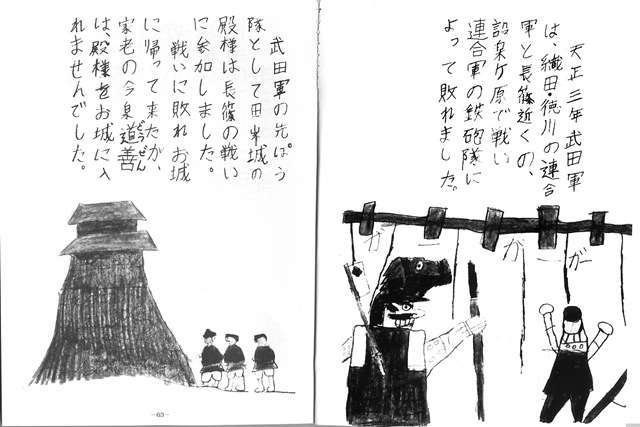 天正三年武田軍
は、織田・徳川の連合
軍と長篠近くの、
設楽ケ原で戦い
連合軍の鉄砲隊に
よって敗れました。
ガ
ガ
ガ
武田軍の先ぽう
隊として田米城の
殿様は長篠の戦い
に参加しました。
戦いに敗れお城
に帰って来たが、
家老の今泉道善
どうぜん
は、殿様をお城に入
れませんでした。
-63-